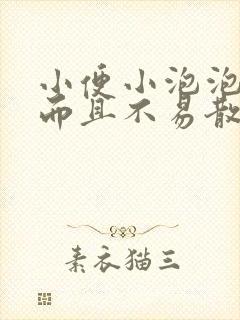 小便小泡泡
而且不易散
素衣猫三